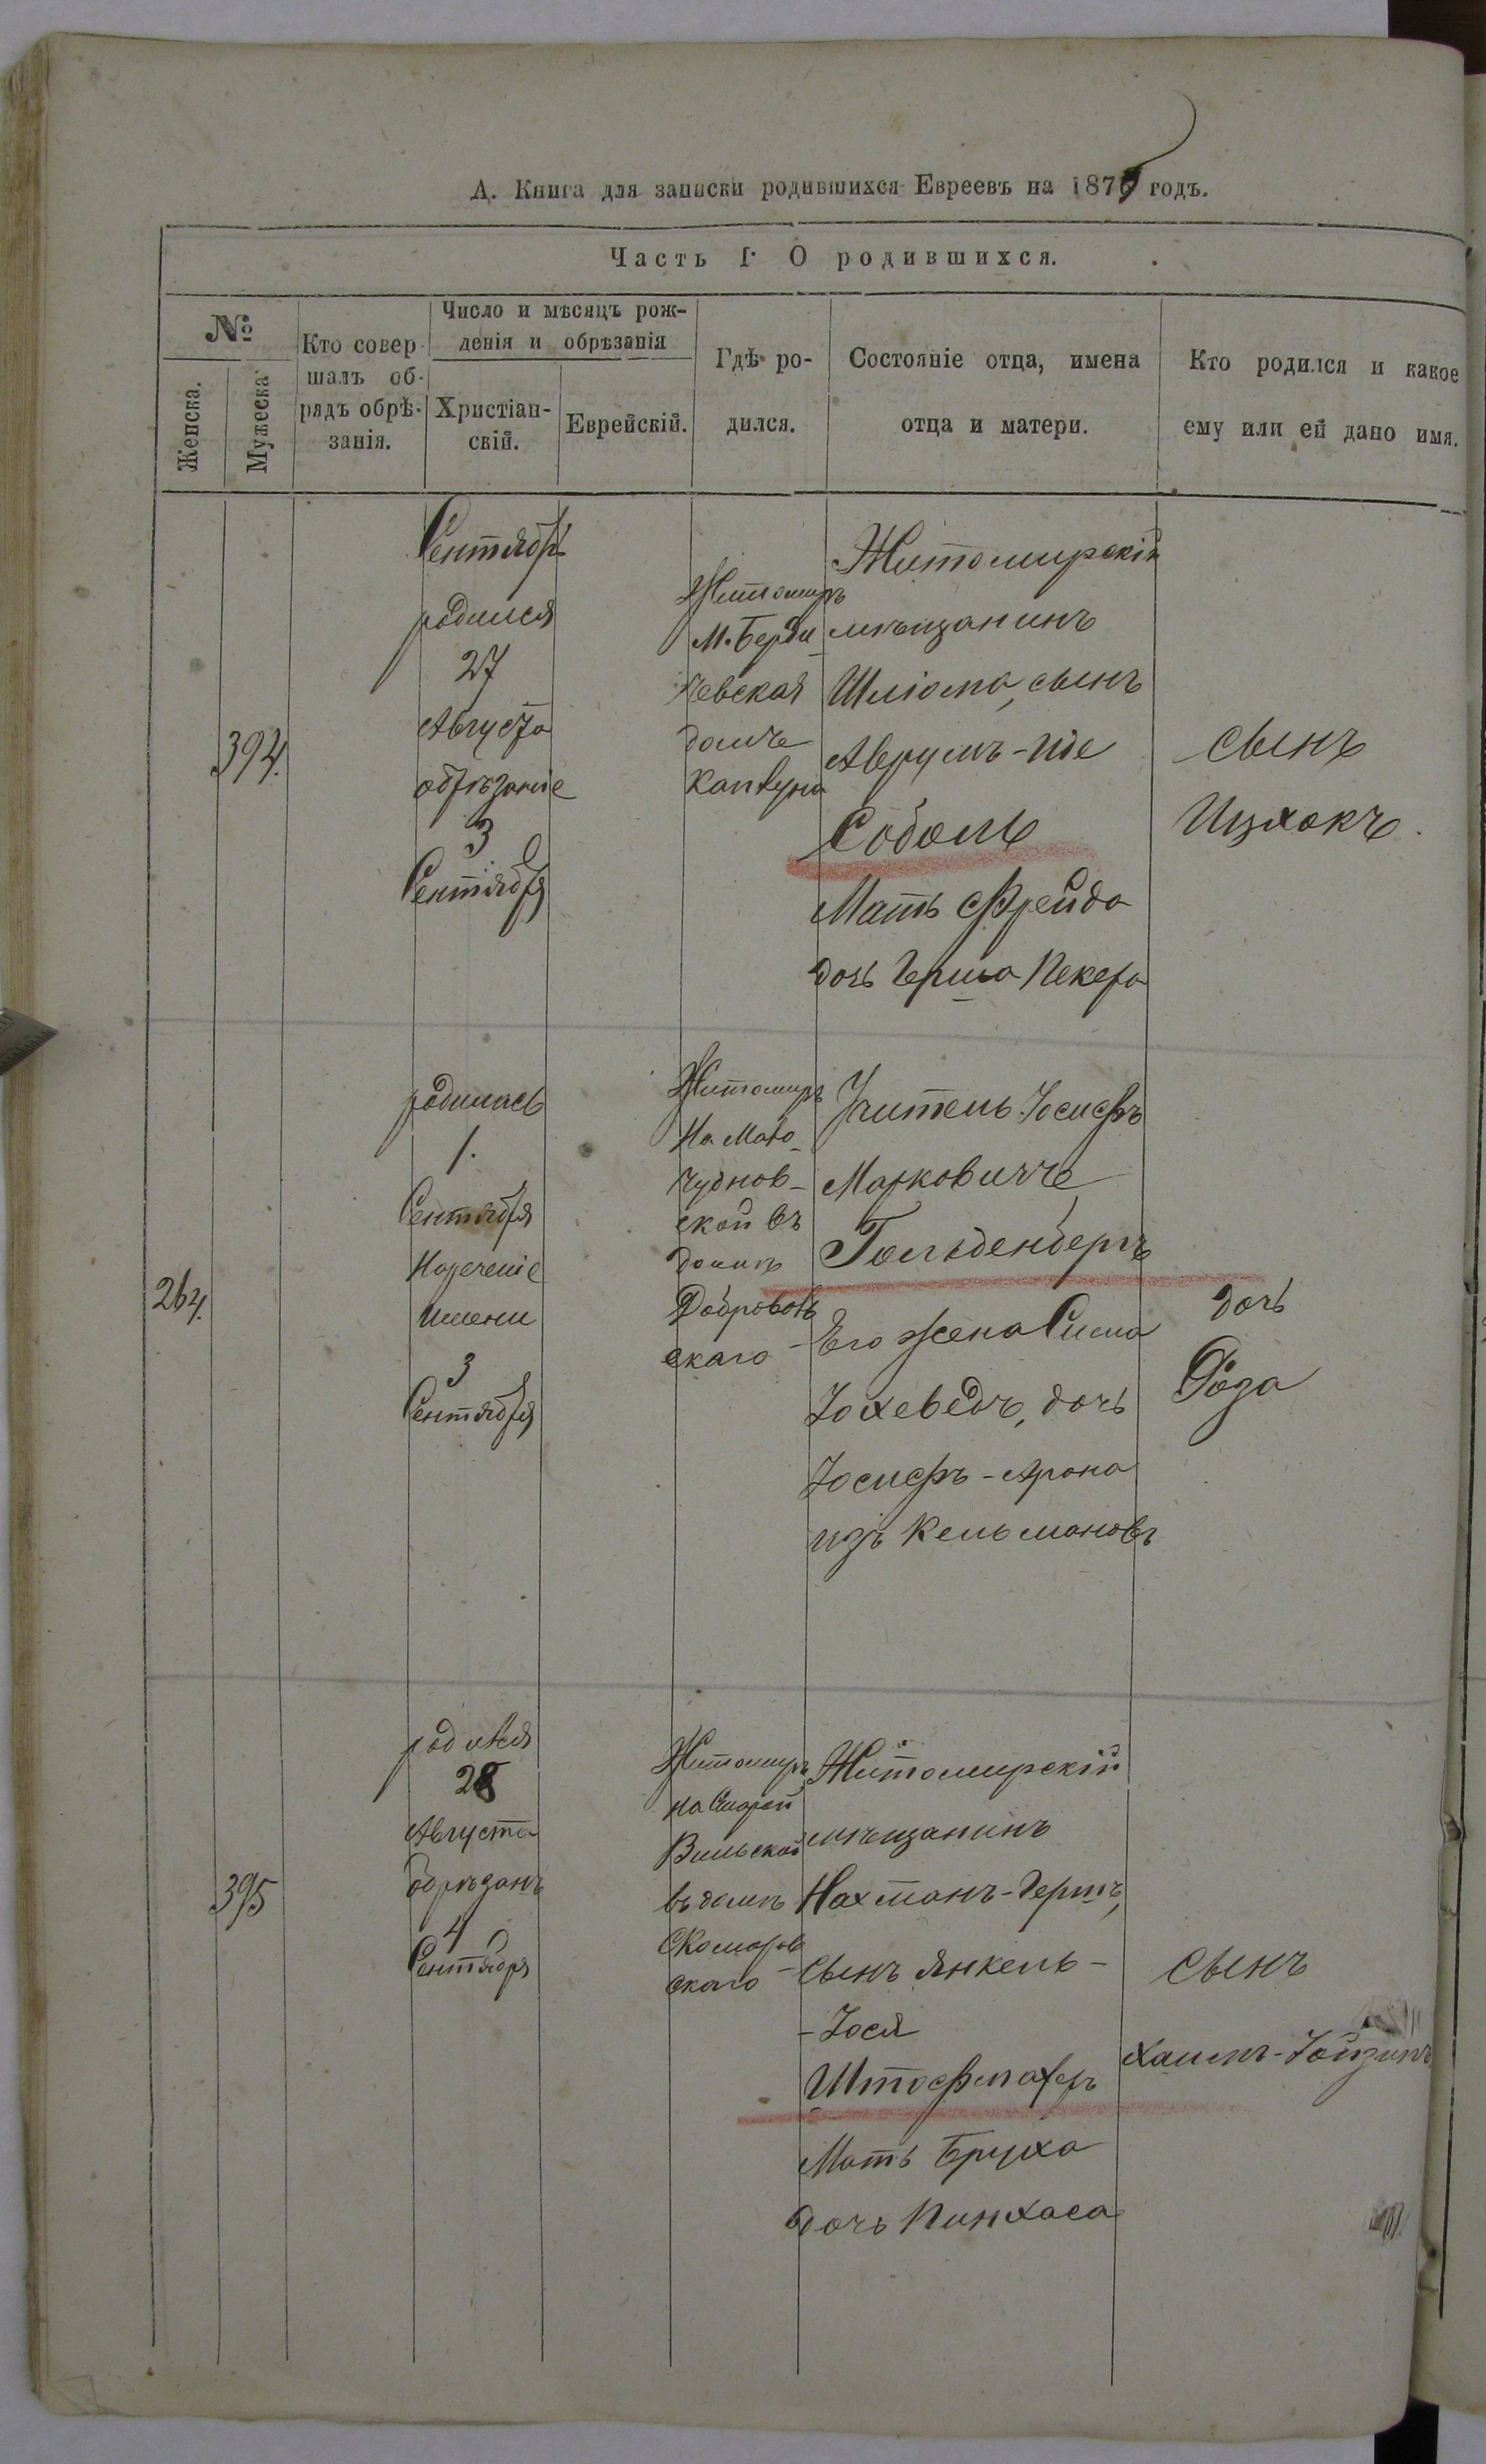 А. Книга для записки родившихся Евреевъ на 1875 годъ.
Часть I. О родившихся.
№
Женска.
Мужеска
Кто совер
шалъ об-
рядъ обрѣ-
занія.
Число и мѣсяцъ рож-
денія и обрѣзанія
Христіан-
скій.
Еврейскій.
Гдѣ ро-
дился.
Состояніе отца, имена
отца и матери.
Кто родился и какое
ему или ей дано имя.
394.
Сентябрь
родился
27
Августа
обрѣзаніе
3
Сентября
Житомиръ
М. Берди
чевская
домъ
Каплуна
Житомирскій
мѣщанинъ
Шліома, сынъ
Аврумъ-Иде
Соболь
Мать Фрейда
дочь Герша Пекера
сынъ
Ицхокъ.
264.
родилась
1.
Сентября
Нареченіе
Имени
3
Сентября
Житомиръ
На Мало
чуднов-
ской въ
домѣ
Добровол
скаго
Учитель Іосифъ
Марковичъ
Гольденбергъ
Его жена Сима
Іохеведъ, дочь
Іосифъ-Арона
изъ Кельмановъ
дочь
Роза
395
родился
28
Августа
Обрѣзанъ
4
Сентября
Житомиръ
на Старой
Вильской
въ домѣ
Скомаров
скаго
Житомирскій
мѣщанинъ
Нахманъ-Гершъ,
сынъ Янкель-
-Іося
Штофмахеръ
Мать Бруха
дочь Пинхаса
сынъ
Хаимъ-Іойзипъ